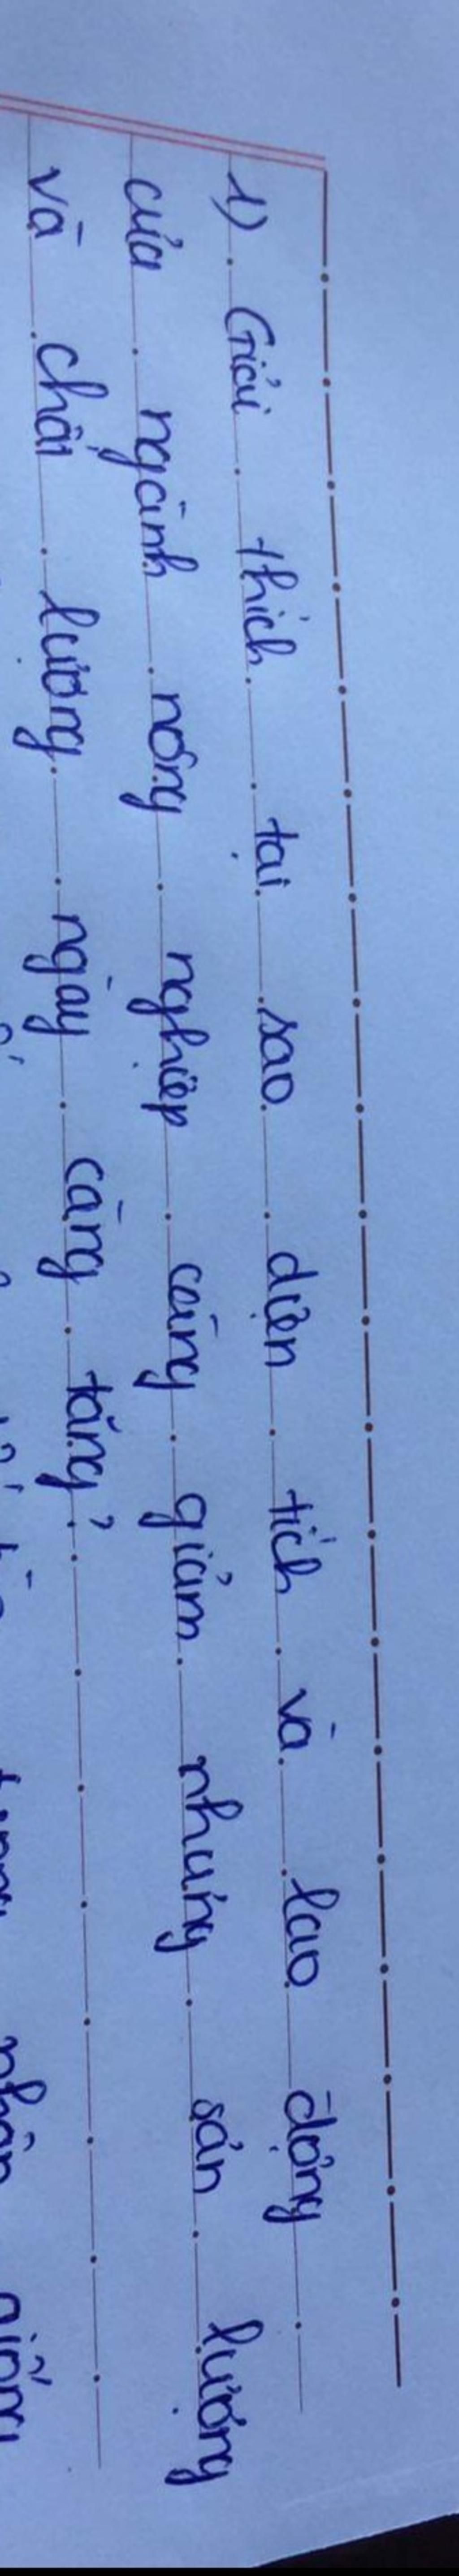 1) Giải thích tại sao diện tích và lao động
của ngành nông nghiệp càng giảm nhưng sản lượng
và chất lượng ngày càng tăng?